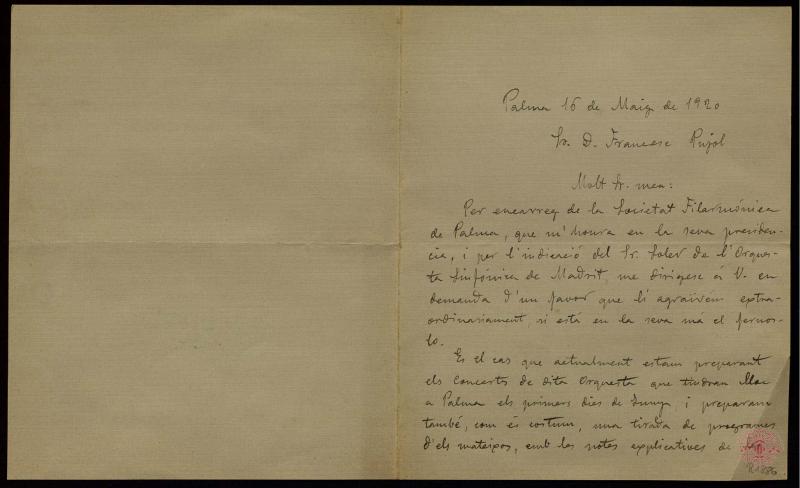 Palma 16 de Maig de 1920
Sr. D. Francesc Pujol
Molt Sr. meu:
Per encarreg de la Societat Filarmónica
de Palma, que m'honra en la seva presiden-
cia, i per l'indicació del Sr. Soler de l'Orques-
ta Sinfónica de Madrit, me dirigesc á V. en
demanda d'un favor que li agrairém extra-
ordinariament, si está en la seva má el fernos-
lo.
Es el cas que actualment estam preparant
els concerts de dita Orquesta que tindran lloc
a Palma els primers dies de Juny, i preparam
també, com és costum, una tirada de programes
d'els mateixos, amb les notes explicatives de
R.1886